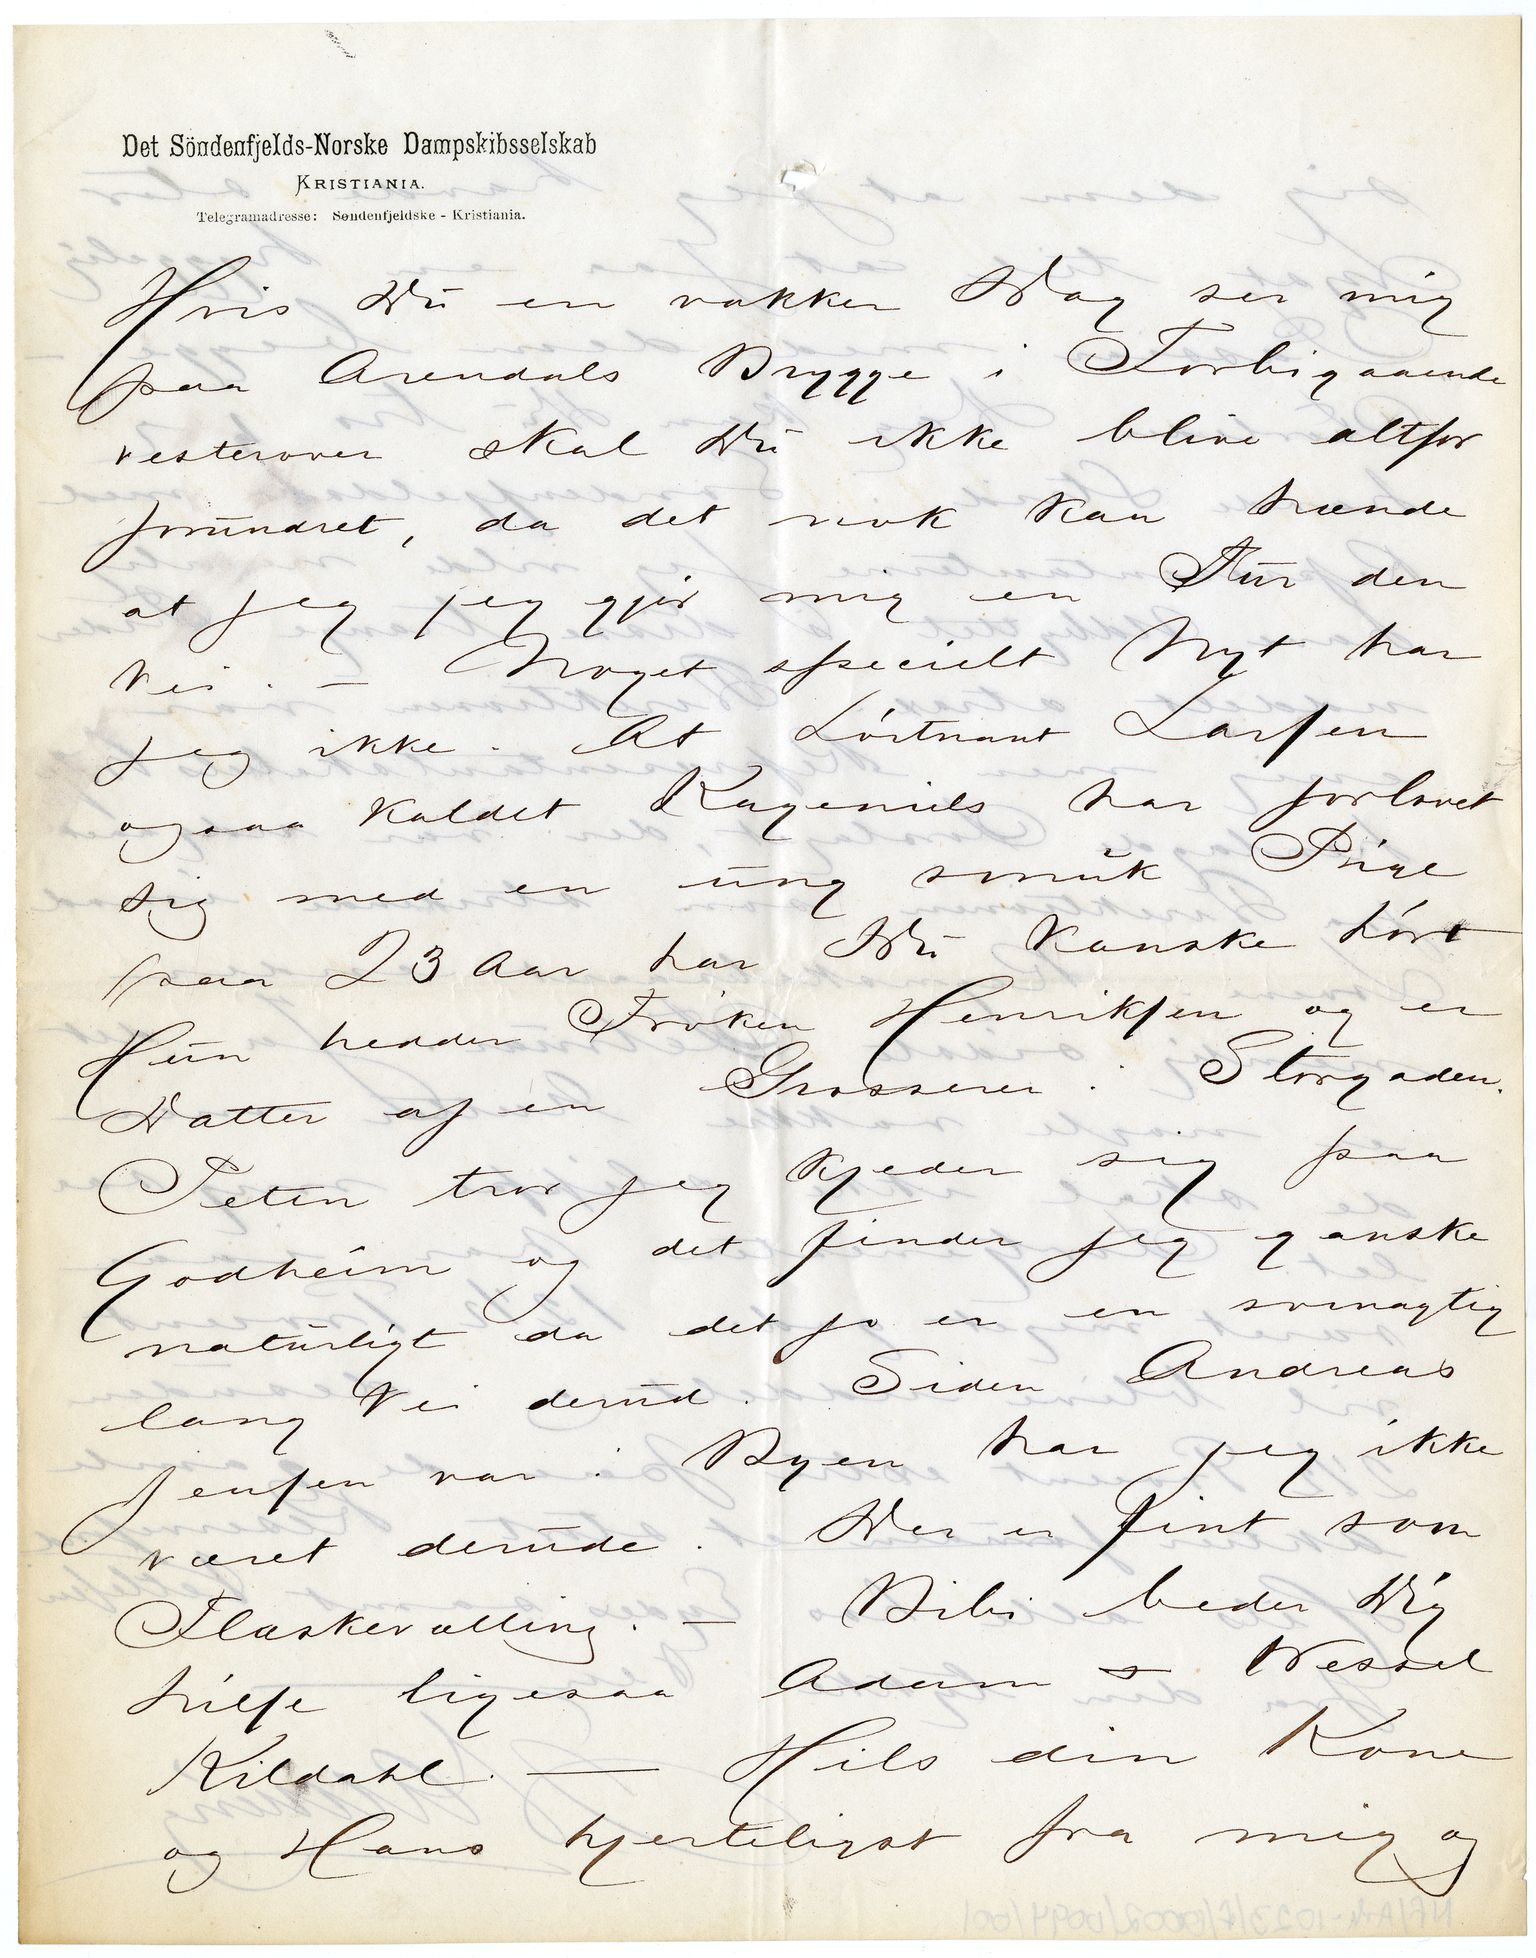 Det Söndenfjelds-Norske Dampskibsselskab
KRISTIANIA.
Telegramadresse: Søndenfjeldske - Kristiania.
Hvis Du en vakker Dag ser mig
paa Arendals Brygge i Forbigaaende
vesterover skal Du ikke blive altfor
forundret, da det nok kan hænde
at jeg jeg gjør mig en Tur den
Vei. — Noget specielt Nyt har
jeg ikke. At Löitnant Larsen
ogsaa kaldet Kagenils har forlovet
sig med en ung smuk Pige
paa 23 Aar har Du kanske hört
Hun hedder Fröken Henriksen og er
Datter af en Grosserer i Storgaden.
Peter tror jeg kjeder sig paa
Godheim og det finder jeg ganske
naturligt da det jo er en svinagtig
lang Vei derud. Siden Andreas
Jensen var i Byen har jeg ikke
været derude. Der er fint som
Flaskevælling. — Bibi beder Dig
hilse ligesaa Adam Wessel
Kildahl. — Hils din Kone
og Hans hjerteligst fra mig og